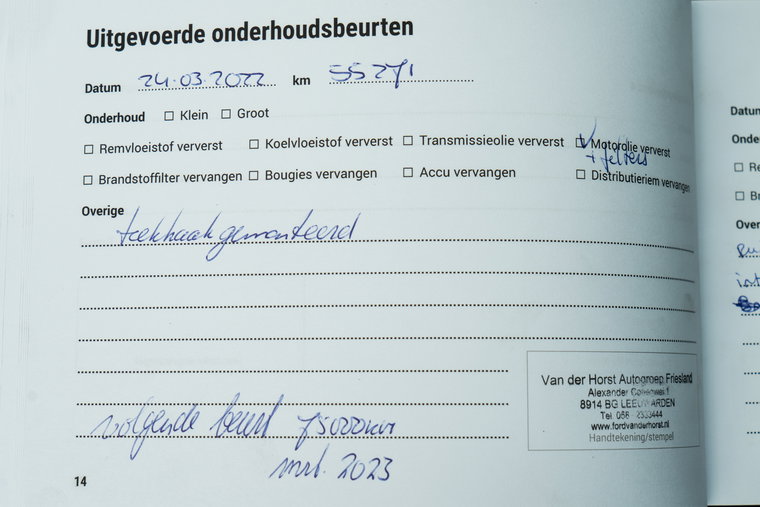 Uitgevoerde onderhoudsbeurten
Datum 24.03.2022 km 55271
Onderhoud ☐ Klein ☐ Groot
☐ Remvloeistof ververst ☐ Koelvloeistof ververst ☐ Transmissieolie ververst ☑ Motorolie ververst
+ filters
☐ Brandstoffilter vervangen ☐ Bougies vervangen ☐ Accu vervangen ☐ Distributieriem vervangen
Overige
trekhaak gemonteerd
Van der Horst Autogroep Friesland
Alexander
8914 BG LEEUWARDEN
Tel. 058 - 2333444
www.fordvanderhorst.nl
Handtekening/stempel
volgende beurt 75000km
mrt. 2023
14
Datum
Onde
☐ Re
☐ Br
Over